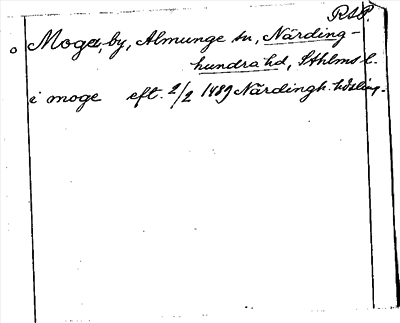 RAP.
Moga, by, Almunge sn, Närding-
hundra hd, Sthlms l.
i moge eft. 2/2 1489 Närdingh. hdsting.